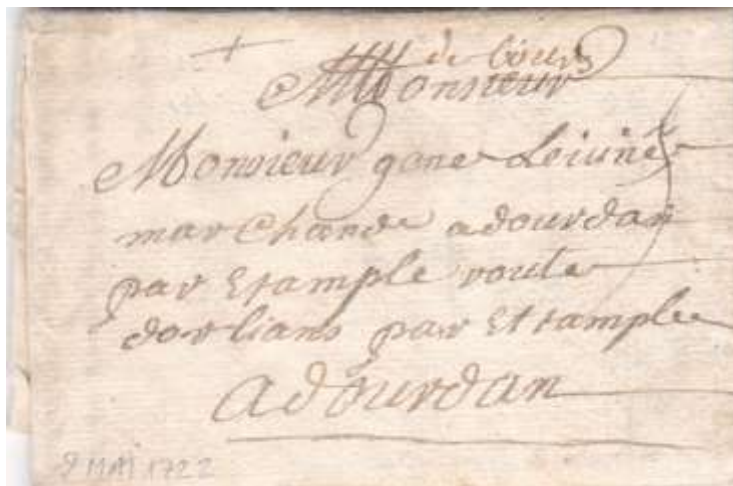 de Tours
Monsieur
Monsieur gone Leiune
marchand adourdan
par Etample route
dorlians par Etample
adourdan
9 MAI 1722